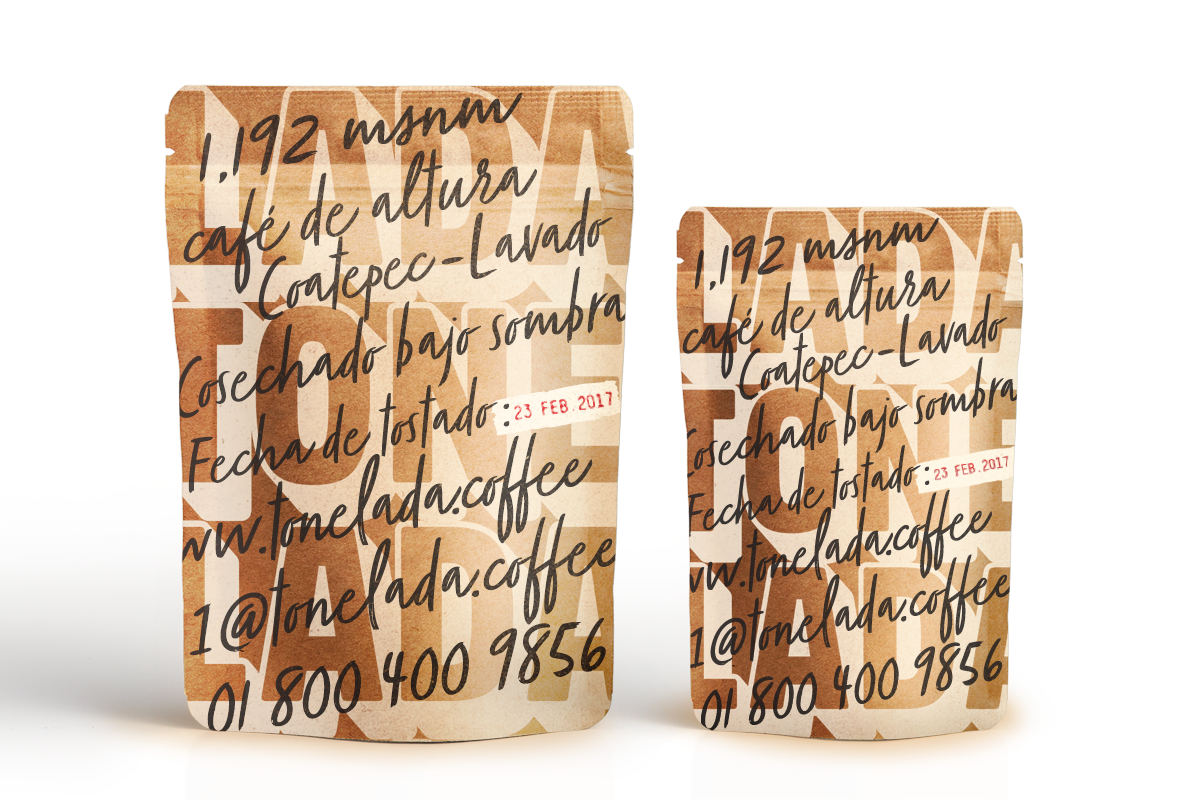 LADA
TONE
LADA
1,192 msnm
café de altura
Coatepec-Lavado
Cosechado bajo sombra
Fecha de tostado: 23 FEB.2017
ww.tonelada.coffee
1@tonelada.coffee
01 800 400 9856
LADA
TONE
LADA
1,192 msnm
café de altura
Coatepec-Lavado
Cosechado bajo sombra
Fecha de tostado: 23 FEB.2017
ww.tonelada.coffee
1@tonelada.coffee
01 800 400 9856